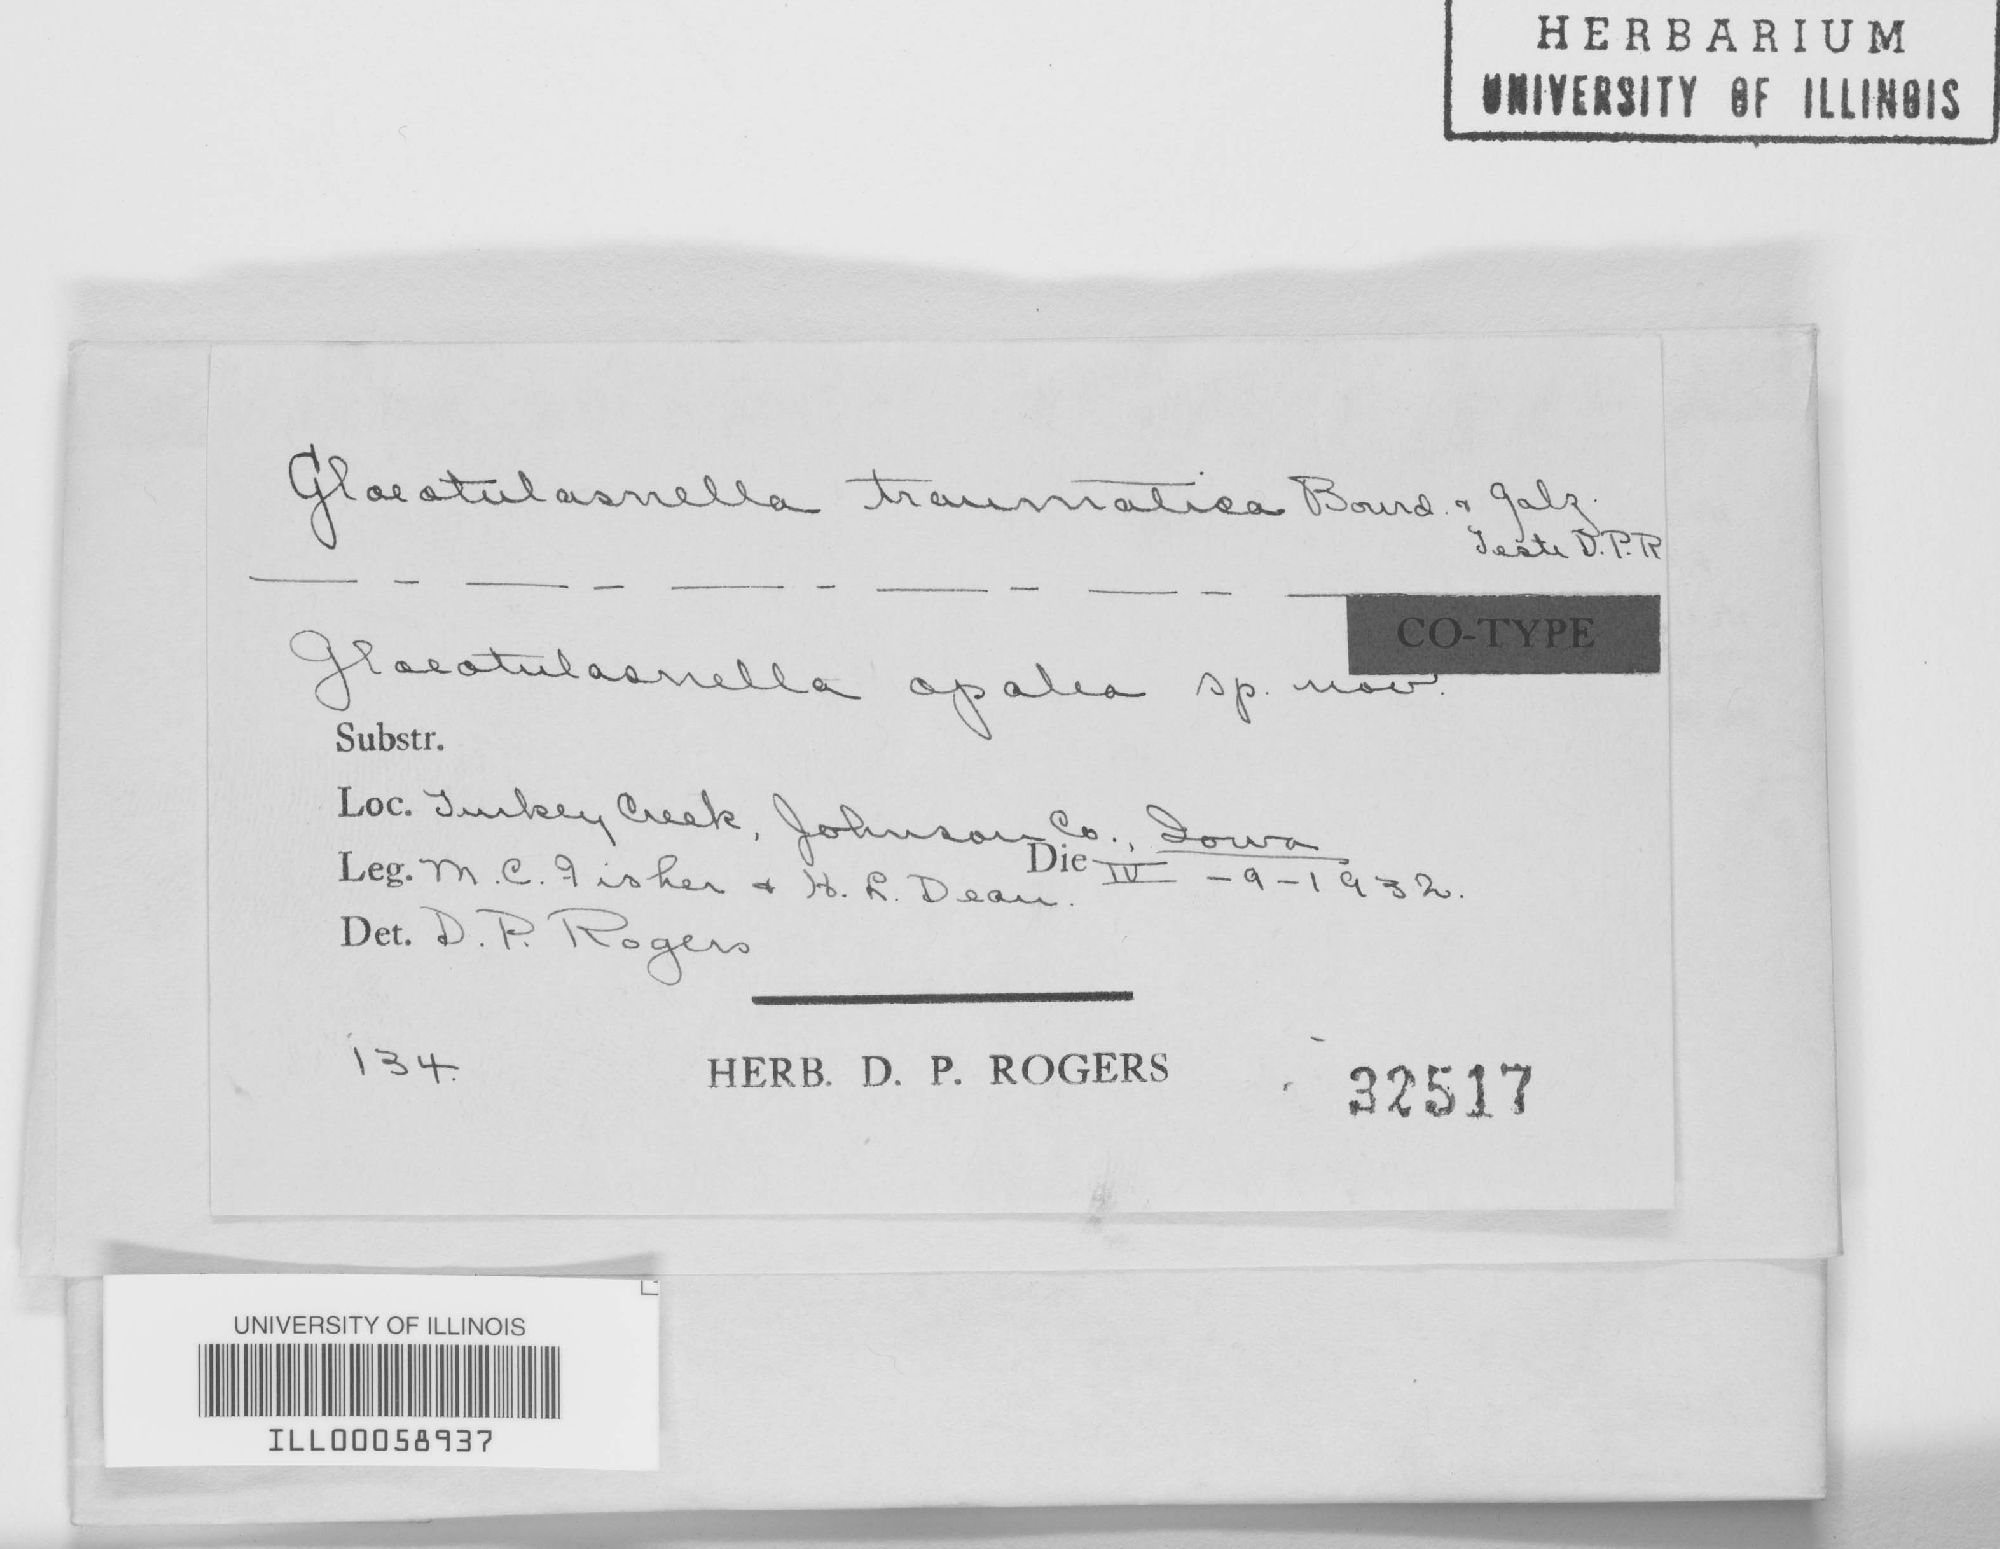 HERBARIUM
UNIVERSITY OF ILLINOIS
Gloeotulasnella traumatica Bourd. & Galz.
Teste D.P.R
CO-TYPE
Gloeotulasnella opalea sp. nov.
Substr.
Loc. Turkey Creek, Johnson Co., Iowa
Leg. M. C. Fisher & H. L. Dean. Die IV -9-1932.
Det. D. P. Rogers
134.
HERB. D. P. ROGERS
32517
UNIVERSITY OF ILLINOIS
ILL00058937